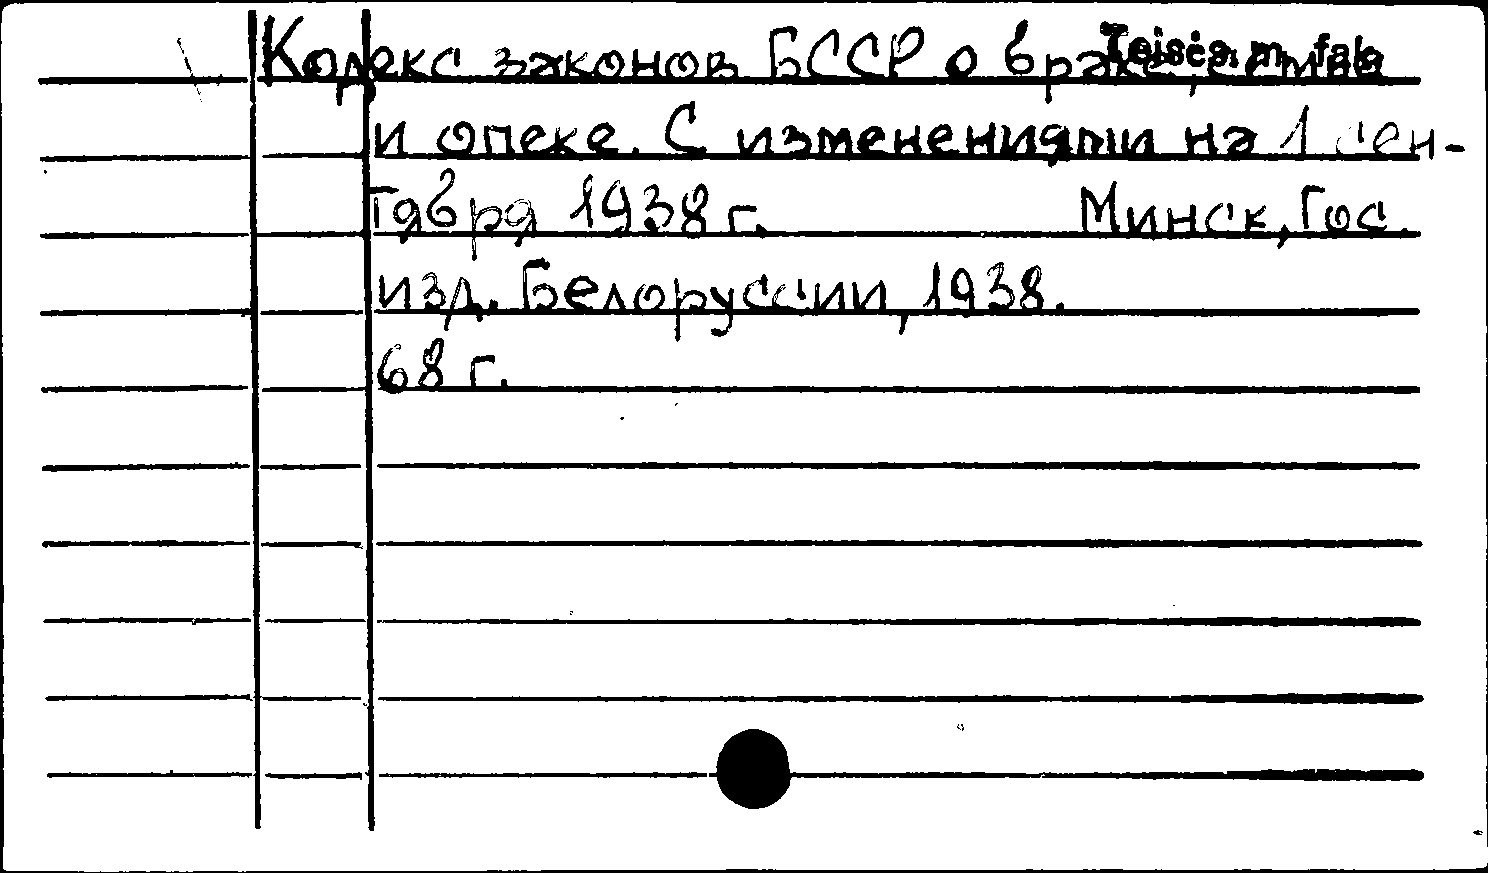 Кодекс законов БССР о браке, семье
Teisės m. fak.
и опеке. С изменениями на 1 сен-
тября 1938 г. Минск, Гос.
изд. Белоруссии, 1938.
68 г.